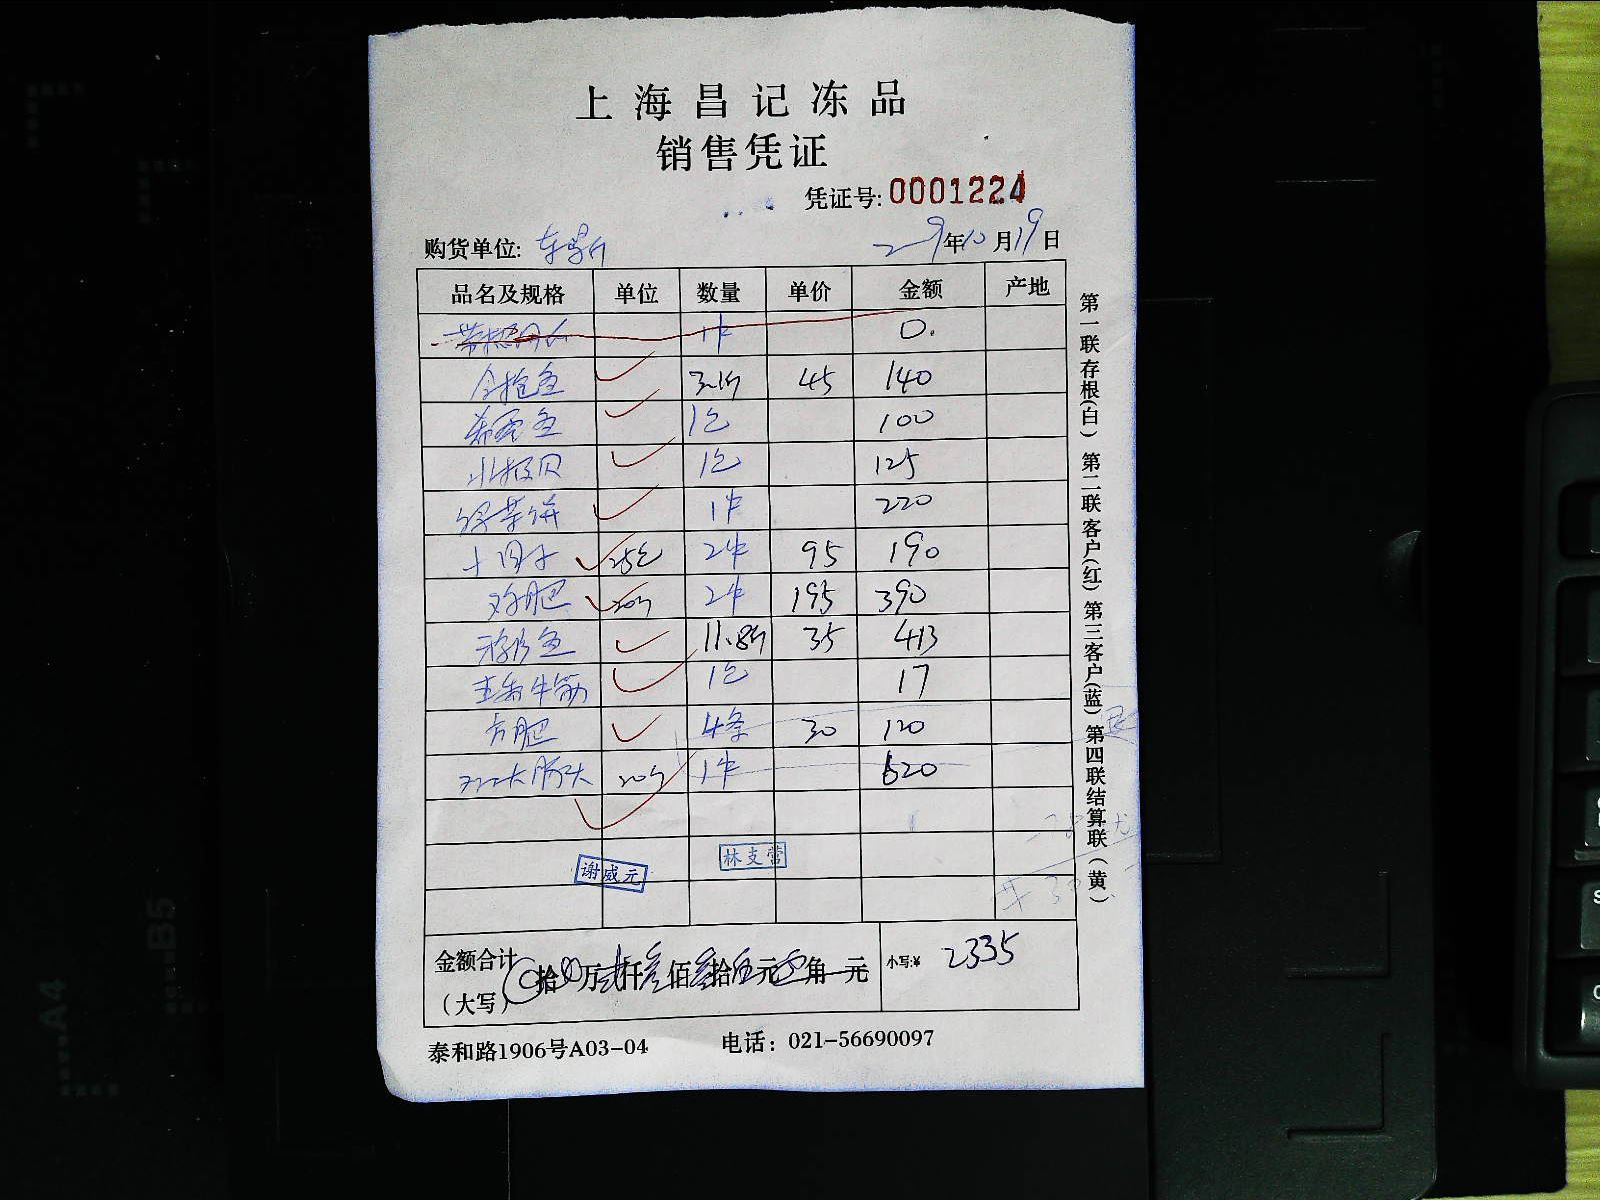 上海昌记冻品
销售凭证
凭证号: 0001224
购货单位:
29年10月19日
品名及规格 单位 数量 单价 金额 产地
1件 0.
金抢鱼 3.1斤 45 140
希零鱼 1包 100
北极贝 1包 125
绿茶饼 1件 220
25包 2件 95 190
鸡肥 20个 2件 195 390
鱼 11.8斤 35 413
牛筋 1包 17
方肥 4条 30 120
20个 1件 620
谢威元 林支营
金额合计
（大写） 拾 万贰仟叁佰叁拾伍元 角 元
小写:¥ 2335
泰和路1906号A03-04 电话：021-56690097
第一联存根(白) 第二联客户(红) 第三客户(蓝) 第四联结算联(黄)